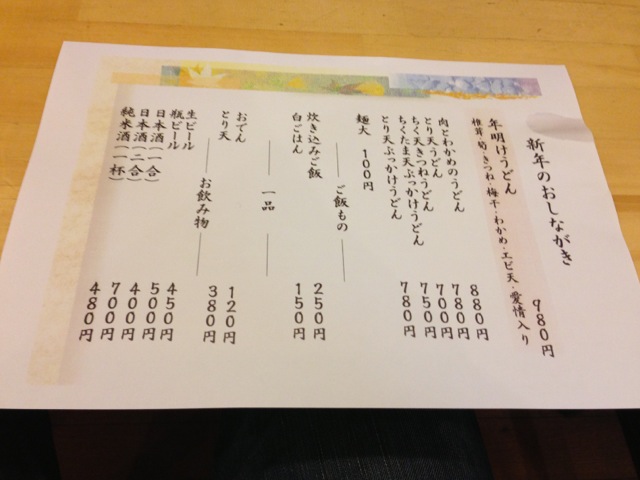 新年のおしながき
年明けうどん ９８０円
椎茸・筍・きつね・梅干・わかめ・エビ天・愛情入り
肉とわかめのうどん ８８０円
とり天うどん ７８０円
ちく天きつねうどん ７００円
ちくたま天ぶっかけうどん ７５０円
とり天ぶっかけうどん ７８０円
麺大 １００円
ご飯もの
炊き込みご飯 ２５０円
白ごはん １５０円
一品
おでん １２０円
とり天 ３８０円
お飲み物
生ビール ４５０円
瓶ビール ５００円
日本酒（一合） ４００円
日本酒（二合） ７００円
純米酒（一杯） ４８０円